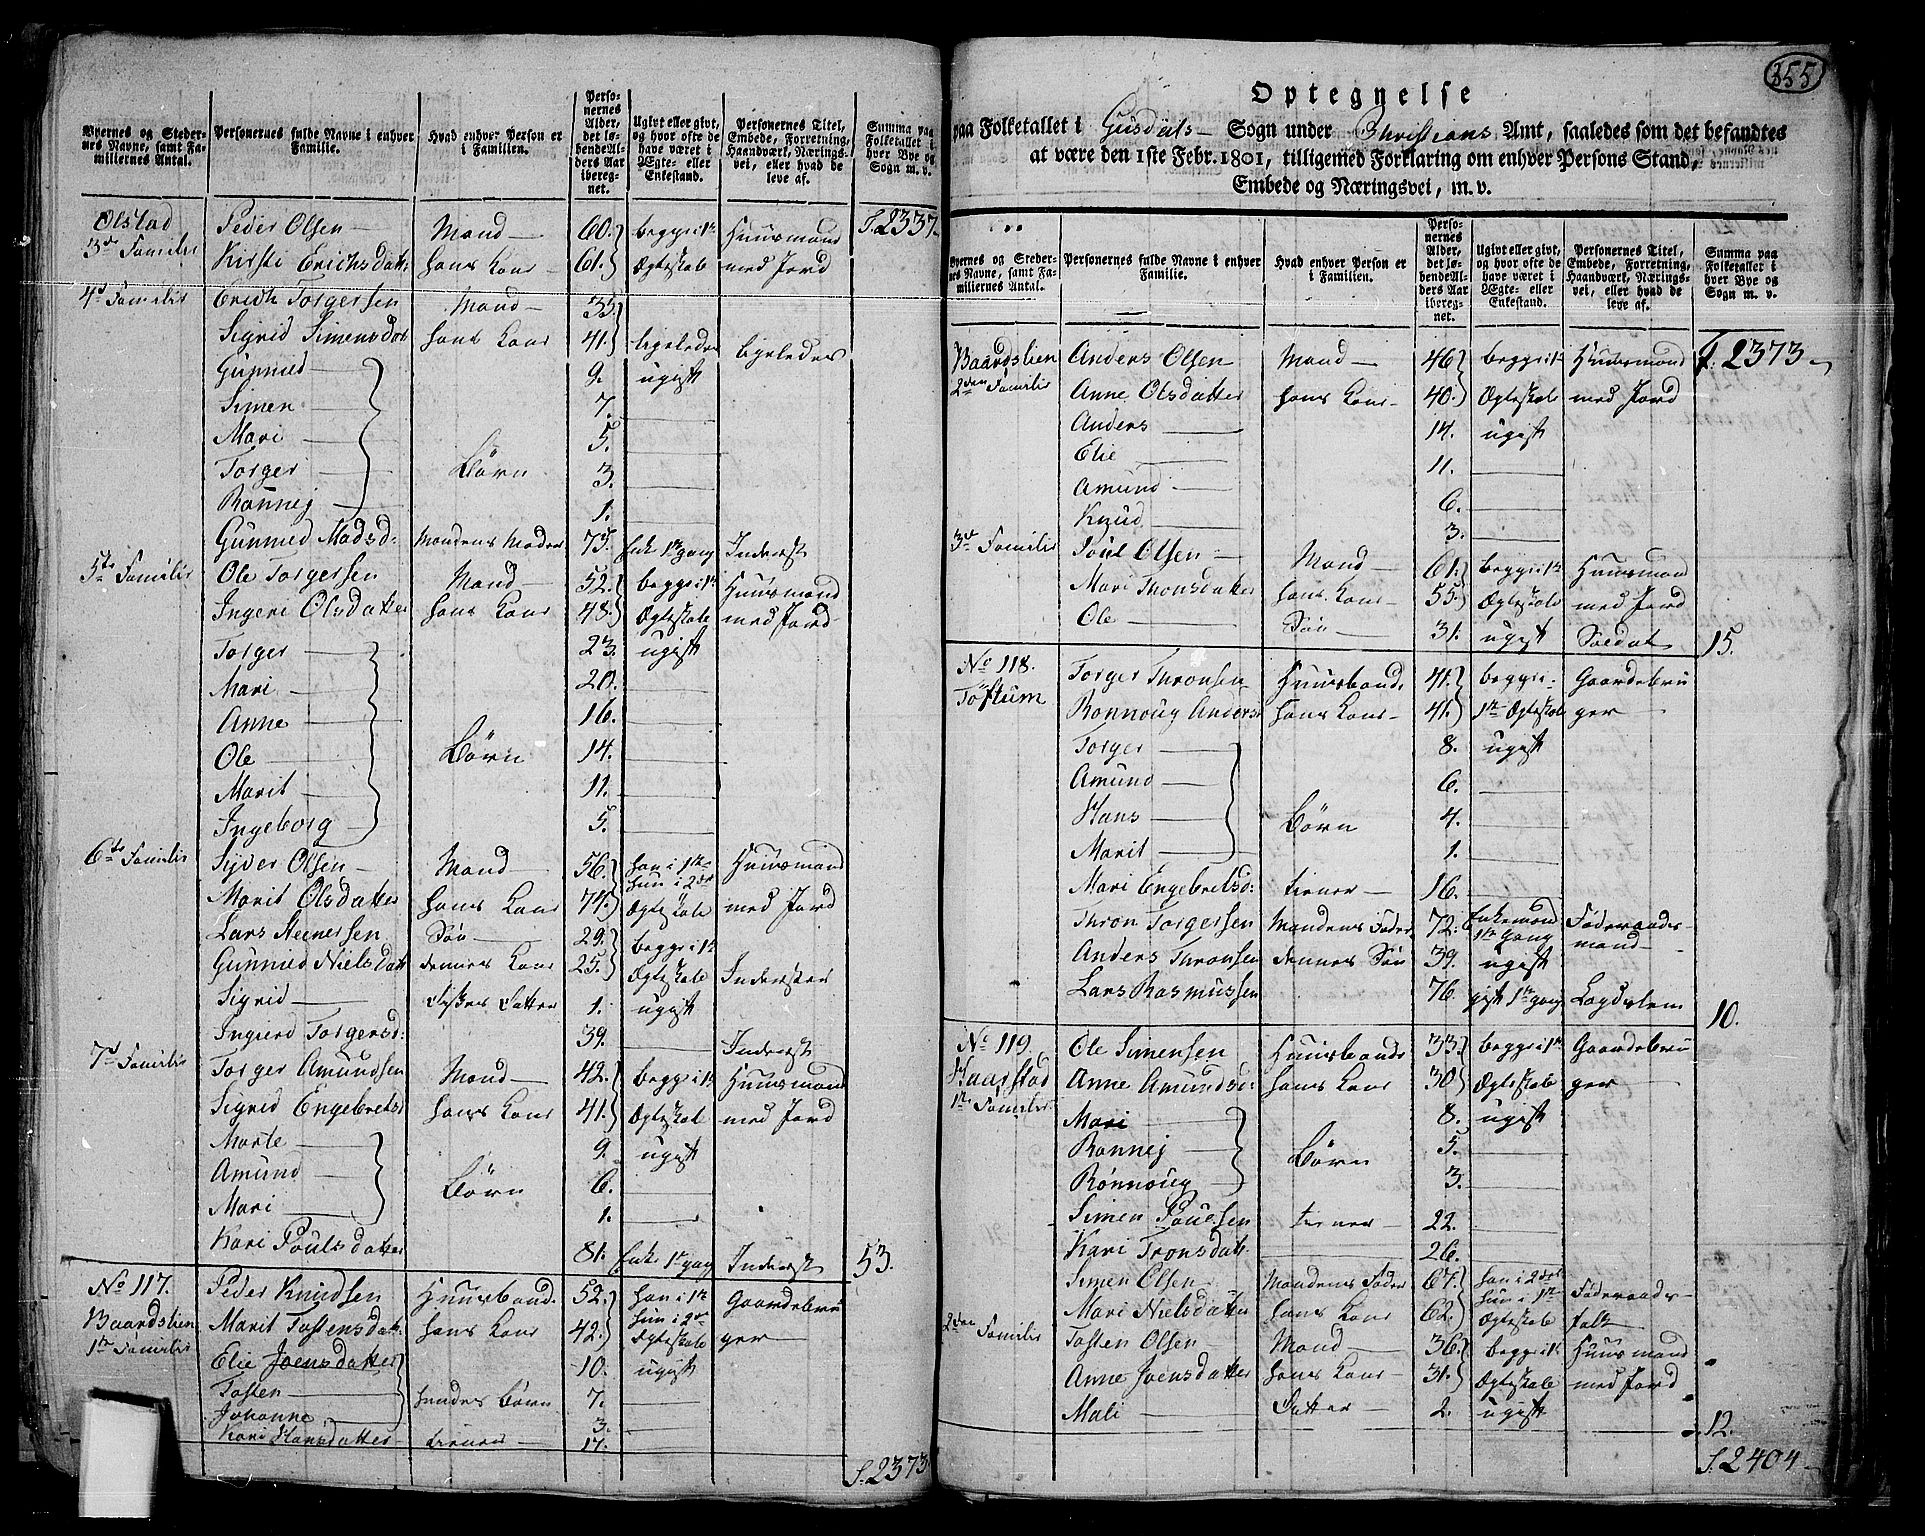 Byernes og Stedernes Navne, samt Familiernes Antal. | Personernes fulde Navne i enhver Familie. | Hvad enhver Person er i Familien. | Personernes Alder, det løbende Alders Aar iberegnet. | Ugivt eller givt, og hvor ofte de have været i Ægte- eller Enkestand. | Personernes Titel, Embede, Forretning, Haandværk, Næringsvei, eller hvad de leve af. | Summa paa Folketallet i hver Bye og Sogn m. v.
Olstad Peder Olsen Mand 60. begge i 1te Huusmand S. 2337
3die Familie Kirsti Erichsdatter hans Kone 61. Ægteskab med Jord
4de Familie Erich Torgersen Mand 35.
Sigrid Simensdat hans Kone 41. ligeledes ligeledes
Gunnied 9. ugift
Simen 7.
Mari 5.
Torger Børn 3.
Ronnej 1.
Gunnied Madsd: Mandens Moder 75. Enke 1te gang Inderst
5te Familie Ole Torgersen Mand 52. begge i 1te Huusmand
Ingeri Olsdatter hans Kone 48. Ægteskab med Jord
Torger 23. ugift
Mari 20.
Anne 16.
Ole Børn 14.
Marit 11.
Ingeborg 5.
6te Familie Syver Olsen Mand 56. han i 1te Huusmand
hun i 2det
Marit Olsdatter hans Kone 74. Ægteskab med Jord
Lars Steenersen Søn 29. begge i 1te
Gunnied Nielsdatt dennes Kone 25. Ægteskab Inderster
Sigrid Datter 1. ugift
Ingierd Torgersd: 39. Inderst
7de Familie Torger Amundsen Mand 42. begge i 1te Huusmand
Sigrid Engebretsd hans Kone 41. Ægteskab med Jord
Marte 9. ugift
Amund Børn 6.
Mari 1.
Kari Poulsdatter 81. Enke 1te gang Inderst 53.
No 117. Peder Knudsen Huusbond 52. han i 1te Gaardebru
Baardslien Marit Tostensdatt: hans Kone 42. hun i 2det ger
1te Familie Ægteskab
Elie Joensdatter 10. ugift
Tosten hendes Børn 7.
Johanne 3.
Kari Hansdatter tiener 17.
S. 2373
355
Optegnelse
paa Folketallet i Gusdals Sogn under Christians Amt, saaledes som det befandtes
at være den 1ste Febr. 1801, tilligemed Forklaring om enhver Persons Stand,
Embede og Næringsvei, m. v.
Byernes og Stedernes Navne, samt Familiernes Antal. | Personernes fulde Navne i enhver Familie. | Hvad enhver Person er i Familien. | Personernes Alder, det løbende Alders Aar iberegnet. | Ugivt eller givt, og hvor ofte de have været i Ægte- eller Enkestand. | Personernes Titel, Embede, Forretning, Haandværk, Næringsvei, eller hvad de leve af. | Summa paa Folketallet i hver Bye og Sogn m. v.
Baardslien Anders Olsen Mand 46. begge i 1te Huusmand T. 2373
2den Familie Anne Olsdatter hans Kone 40. Ægteskab med Jord
Anders 14. ugift
Elie 11.
Amund 6.
Knud 3.
3die Familie Poul Olsen Mand 61. begge i 1te Huusmand
Mari Thronsdatter hans Kone 55. Ægteskab med Jord
Ole Søn 31. ugift Soldat 15.
No 118. Torger Thronsen Huusbond 41. begge i Gaardebru
Toftum Ronnoug Anders hans Kone 41. 1te Ægteskab ger
Torger 8. ugift
Amund 6.
Hans Børn 4.
Marit 1.
Mari Engebretsd: tiener 16.
Thron Torgersen Mandens Fader 72. Enkemand 1te Gang Føderaadsmand
Anders Thronsen dennes Søn 39. ugift
Lars Rasmussen 76. gift 1te gang Lægdslem 10.
No 119. Ole Simensen Huusbonde 33. begge i 1te Gaardebru
Kaarstad Anne Amundsd: hans Kone 30. Ægteskab ger
1te Familie Mari 8. ugift
Ronnej Børn 5.
Rønnoug 3.
Simen Poulsen tiener 22.
Kari Tronsdatt. 26.
Simen Olsen Mandens Fader 67. han i 2det Føderaads-
hun i 1te
Mari Nielsdatter hans Kone 62. Ægteskab folk
2den Familie Tosten Olsen Mand 36. begge i 1te Huusmand
Anne Joensdatter hans Kone 31. Ægteskab med Jord
Mali Datter 2. ugift
12.
S. 2404